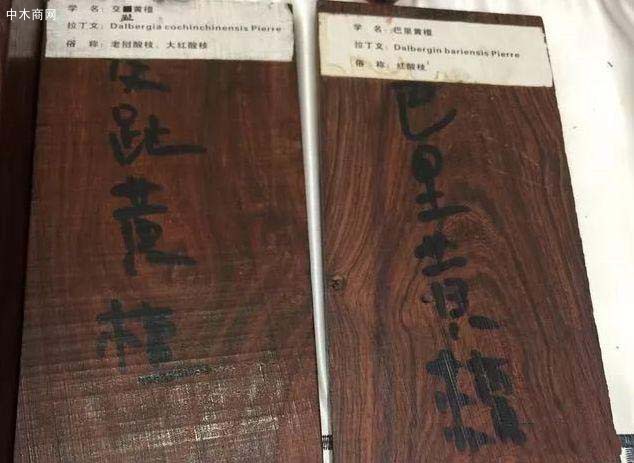 中木商网
学 名：交趾黄檀
拉丁文：Dalbergia cochinchinensis Pierre
俗 称：老挝酸枝、大红酸枝
交
趾
黄
檀
学 名：巴里黄檀
拉丁文：Dalbergin bariensis Pierre
俗 称：红酸枝
巴
里
黄
檀